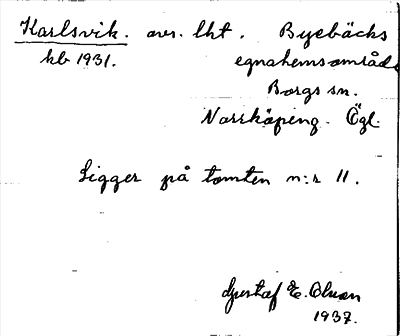 Karlsvik. avs. lht. Byebäcks
kb 1931. egnahemsområde
Borgs sn.
Norrköping. Ögl.
Ligger på tomten n:r 11.
Gustaf E. Olson
1937.